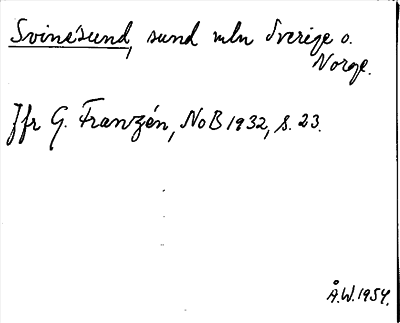 Svinesund, sund mln Sverige o.
Norge.
Jfr G. Franzén, NoB 1932, s. 23.
Å.W. 1954.